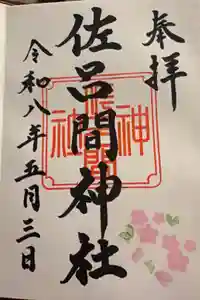 奉拝
佐呂間神社
令和八年五月三日
佐呂間神社